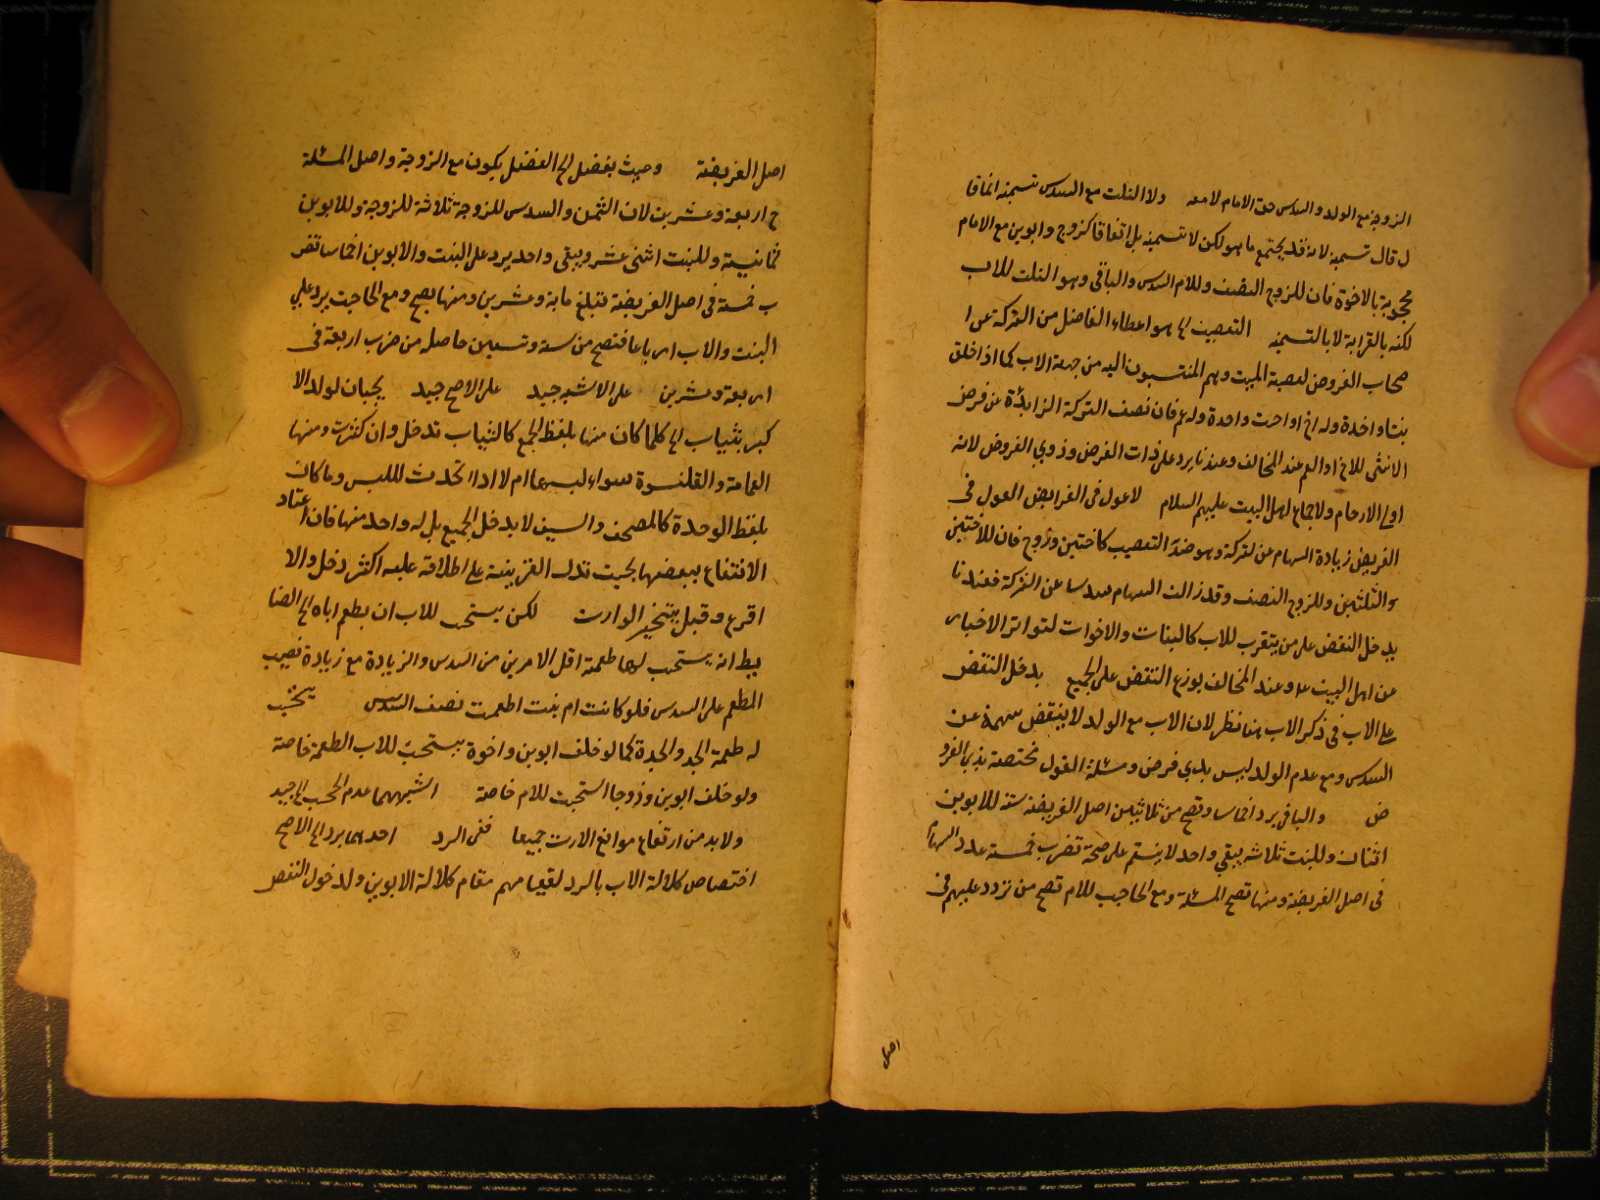 الزوجة مع الولد والسدس حق الام لامعه ولا الثلث مع السدس تسمية اتفاقا
ل قال تسمية لانه قد يجتمع ما هو لكن لا تسمية بل اتفاقا كزوج وابوين مع الامام
محجوبة بالاخوة فان للزوج النصف وللام السدس والباقي وهو الثلث للاب
لكنه بالقرابة لا بالتسمية التعصيب اي هو اعطاء الفاضل من التركة عن ا
صحاب الفروض لعصبة الميت وهم المنتسبون اليه من جهة الاب كما اذا خلف
بنتا واحدة وله اخ او اخت واحدة وله عم فان نصف التركة الزائدة عن فرض
الانثى للاخ او العم عند المخالف وعندنا يرد على ذات الفرض وذوي الفروض لانه
اولي الارحام ولاجماع اهل البيت عليهم السلام لا عول في الفرايض العول في
الفريض زيادة السهام عن لتركة وهو ضد التعصيب كاختين وزوج فان للاختين
الثلثين وللزوج النصف وقد زالت السهام سدسا عن التركة فعندنا
يدخل النقض على من يتقرب للاب كالبنات والاخوات لتواتر الاخبار
عن اهل البيت ع وعند المخالف يوزع النقض على الجميع يدخل النقض
على الاب في ذكر الاب هنا نظر لان الاب مع الولد لا ينقض سهمه عن
السدس ومع عدم الولد ليس بذي فرض ومسئلة العول مختصة بذي الفرو
ض والباقي يرد اخماسا وتصح من ثلاثين اصل الفريضة ستة للابوين
اثنان وللبنت ثلاثة يبقي واحد لا ينقسم على صحة تضرب خمسة عدد السهام
في اصل الفريضة ومنها تصح المسئلة ومع الحاجب للام تصح من نردد عليهم في
اصل
اصل الفريضة وحيث يفضل اي الفضل يكون مع الزوجة واصل المسئلة
ح اربعة وعشرين لان الثمن والسدس للزوجة ثلاثة للزوجة وللابوين
ثمانية وللبنت اثنى عشر ويبقى واحد يرد على البنت والابوين اخماسا تضر
ب خمسة في اصل الفريضة تبلغ ماية وعشرين ومنها يصح ومع الحاجب يرد علي
البنت والاب ارباعا فتصح من ستة وتسعين حاصله من ضرب اربعة في
اربعة وعشرين على الاشبه جيد على الاصح جيد يحبان لولد الا
كبر بثياب اي كلما كان منها بلفظ الجمع كالثياب تدخل وان كثرت ومنها
العمامة والقلنسوة سواء لبسها ام لا اذا اتحدت لللبس وما كان
بلفظ الوحدة كالمصحف والسيف لا يدخل الجميع بل له واحد منها فان اعتاد
الانتفاع ببعضها بحيث تدل القرينة على اطلاقه عليه اكثر دخل والا
اقرع وقيل يتخير الوارث لكن يستحب للاب ان يطعم اباه اي الضا
بط انه يستحب لهما طعمة اقل الامرين من السدس والزيادة مع زيادة نصيب
المطعم على السدس فلو كانت ام بنت اطعمت نصف السدس يستحب
له طعمة الجد والجدة كما لو خلف ابوين واخوة يستحب للاب الطعمة خاصة
ولو خلف ابوين وزوجا استحبت للام خاصة اشبههما عدم الحجب اي جيد
ولا بد من ارتفاع موانع الارث جميعا ففى الرد احدهما يرد اي الاصح
اختصاص كلالة الاب بالرد لقيامهم مقام كلالة الابوين ولدخول النقص